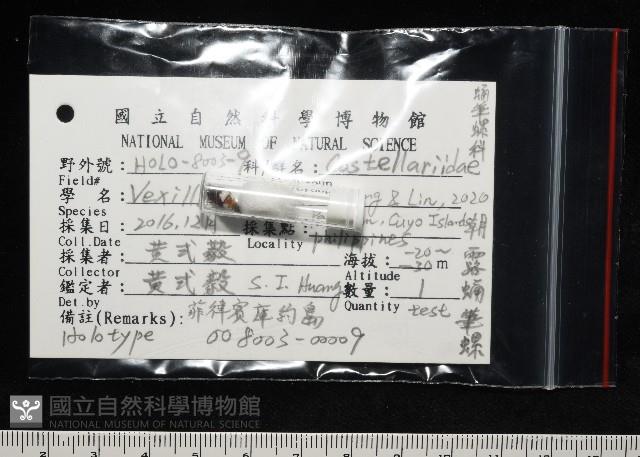 國立自然科學博物館
NATIONAL MUSEUM OF NATURAL SCIENCE
野外號: HOLO-8003-9 科/群名: Costellariidae
Field#
學名: Vexill g & Lin, 2020
Species
採集日: 2016.12月 採集點: n, Cuyo Islands
Coll.Date Locality philippines
採集者: 黃式毅 海拔: -20~-30 m
Collector Altitude
鑑定者: 黃式毅 S. I. Huang 數量: 1
Det.by Quantity test
備註(Remarks): 菲律賓庫約島
Holotype 008003-00009
蛹筆螺科
朝露蛹筆螺
國立自然科學博物館
NATIONAL MUSEUM OF NATURAL SCIENCE
2 3 4 5 6 7 8 9 10 11 12 13 14 15